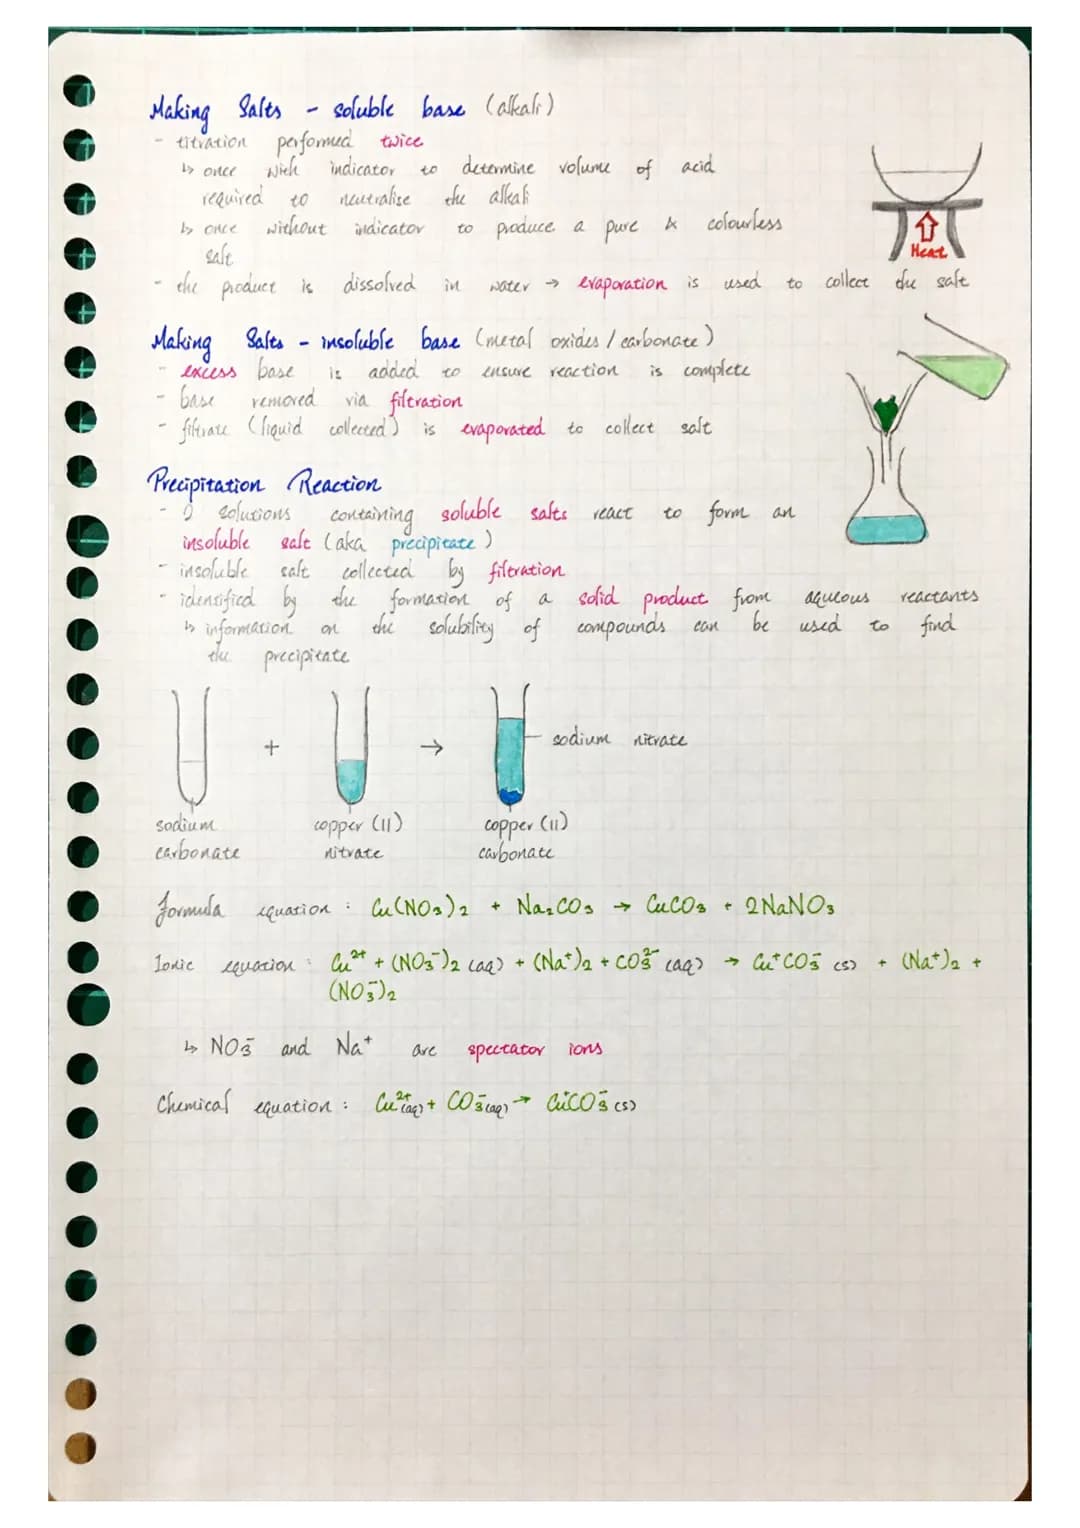 Making Salts - soluble base (alkali)
- titration performed twice
↳ once with indicator to determine volume of acid
required to neutralise the alkali
↳ once without indicator to produce a pure & colourless
salt
Heat
- the product is dissolved in water → evaporation is used to collect the salt
Making Salts - insoluble base (metal oxides / carbonate)
- excess base is added to ensure reaction is complete
- base removed via filtration
- filtrate (liquid collected) is evaporated to collect salt
Precipitation Reaction
- 2 solutions containing soluble salts react to form an
insoluble salt (aka precipitate)
- insoluble salt collected by filtration
- identified by the formation of a solid product from aqueous reactants
↳ information on the solubility of compounds can be used to find
the precipitate
+ → sodium nitrate
sodium copper (II) copper (II)
carbonate nitrate carbonate
formula equation : Cu(NO₃)₂ + Na₂CO₃ → CuCO₃ + 2NaNO₃
Ionic equation : Cu²⁺ + (NO₃⁻)₂ (aq) + (Na⁺)₂ + CO₃²⁻ (aq) → Cu⁺CO₃⁻ (s) + (Na⁺)₂ +
(NO₃⁻)₂
↳ NO₃⁻ and Na⁺ are spectator ions
Chemical equation : Cu²⁺(aq) + CO₃⁻(aq) → Cu⁺CO₃⁻ (s)